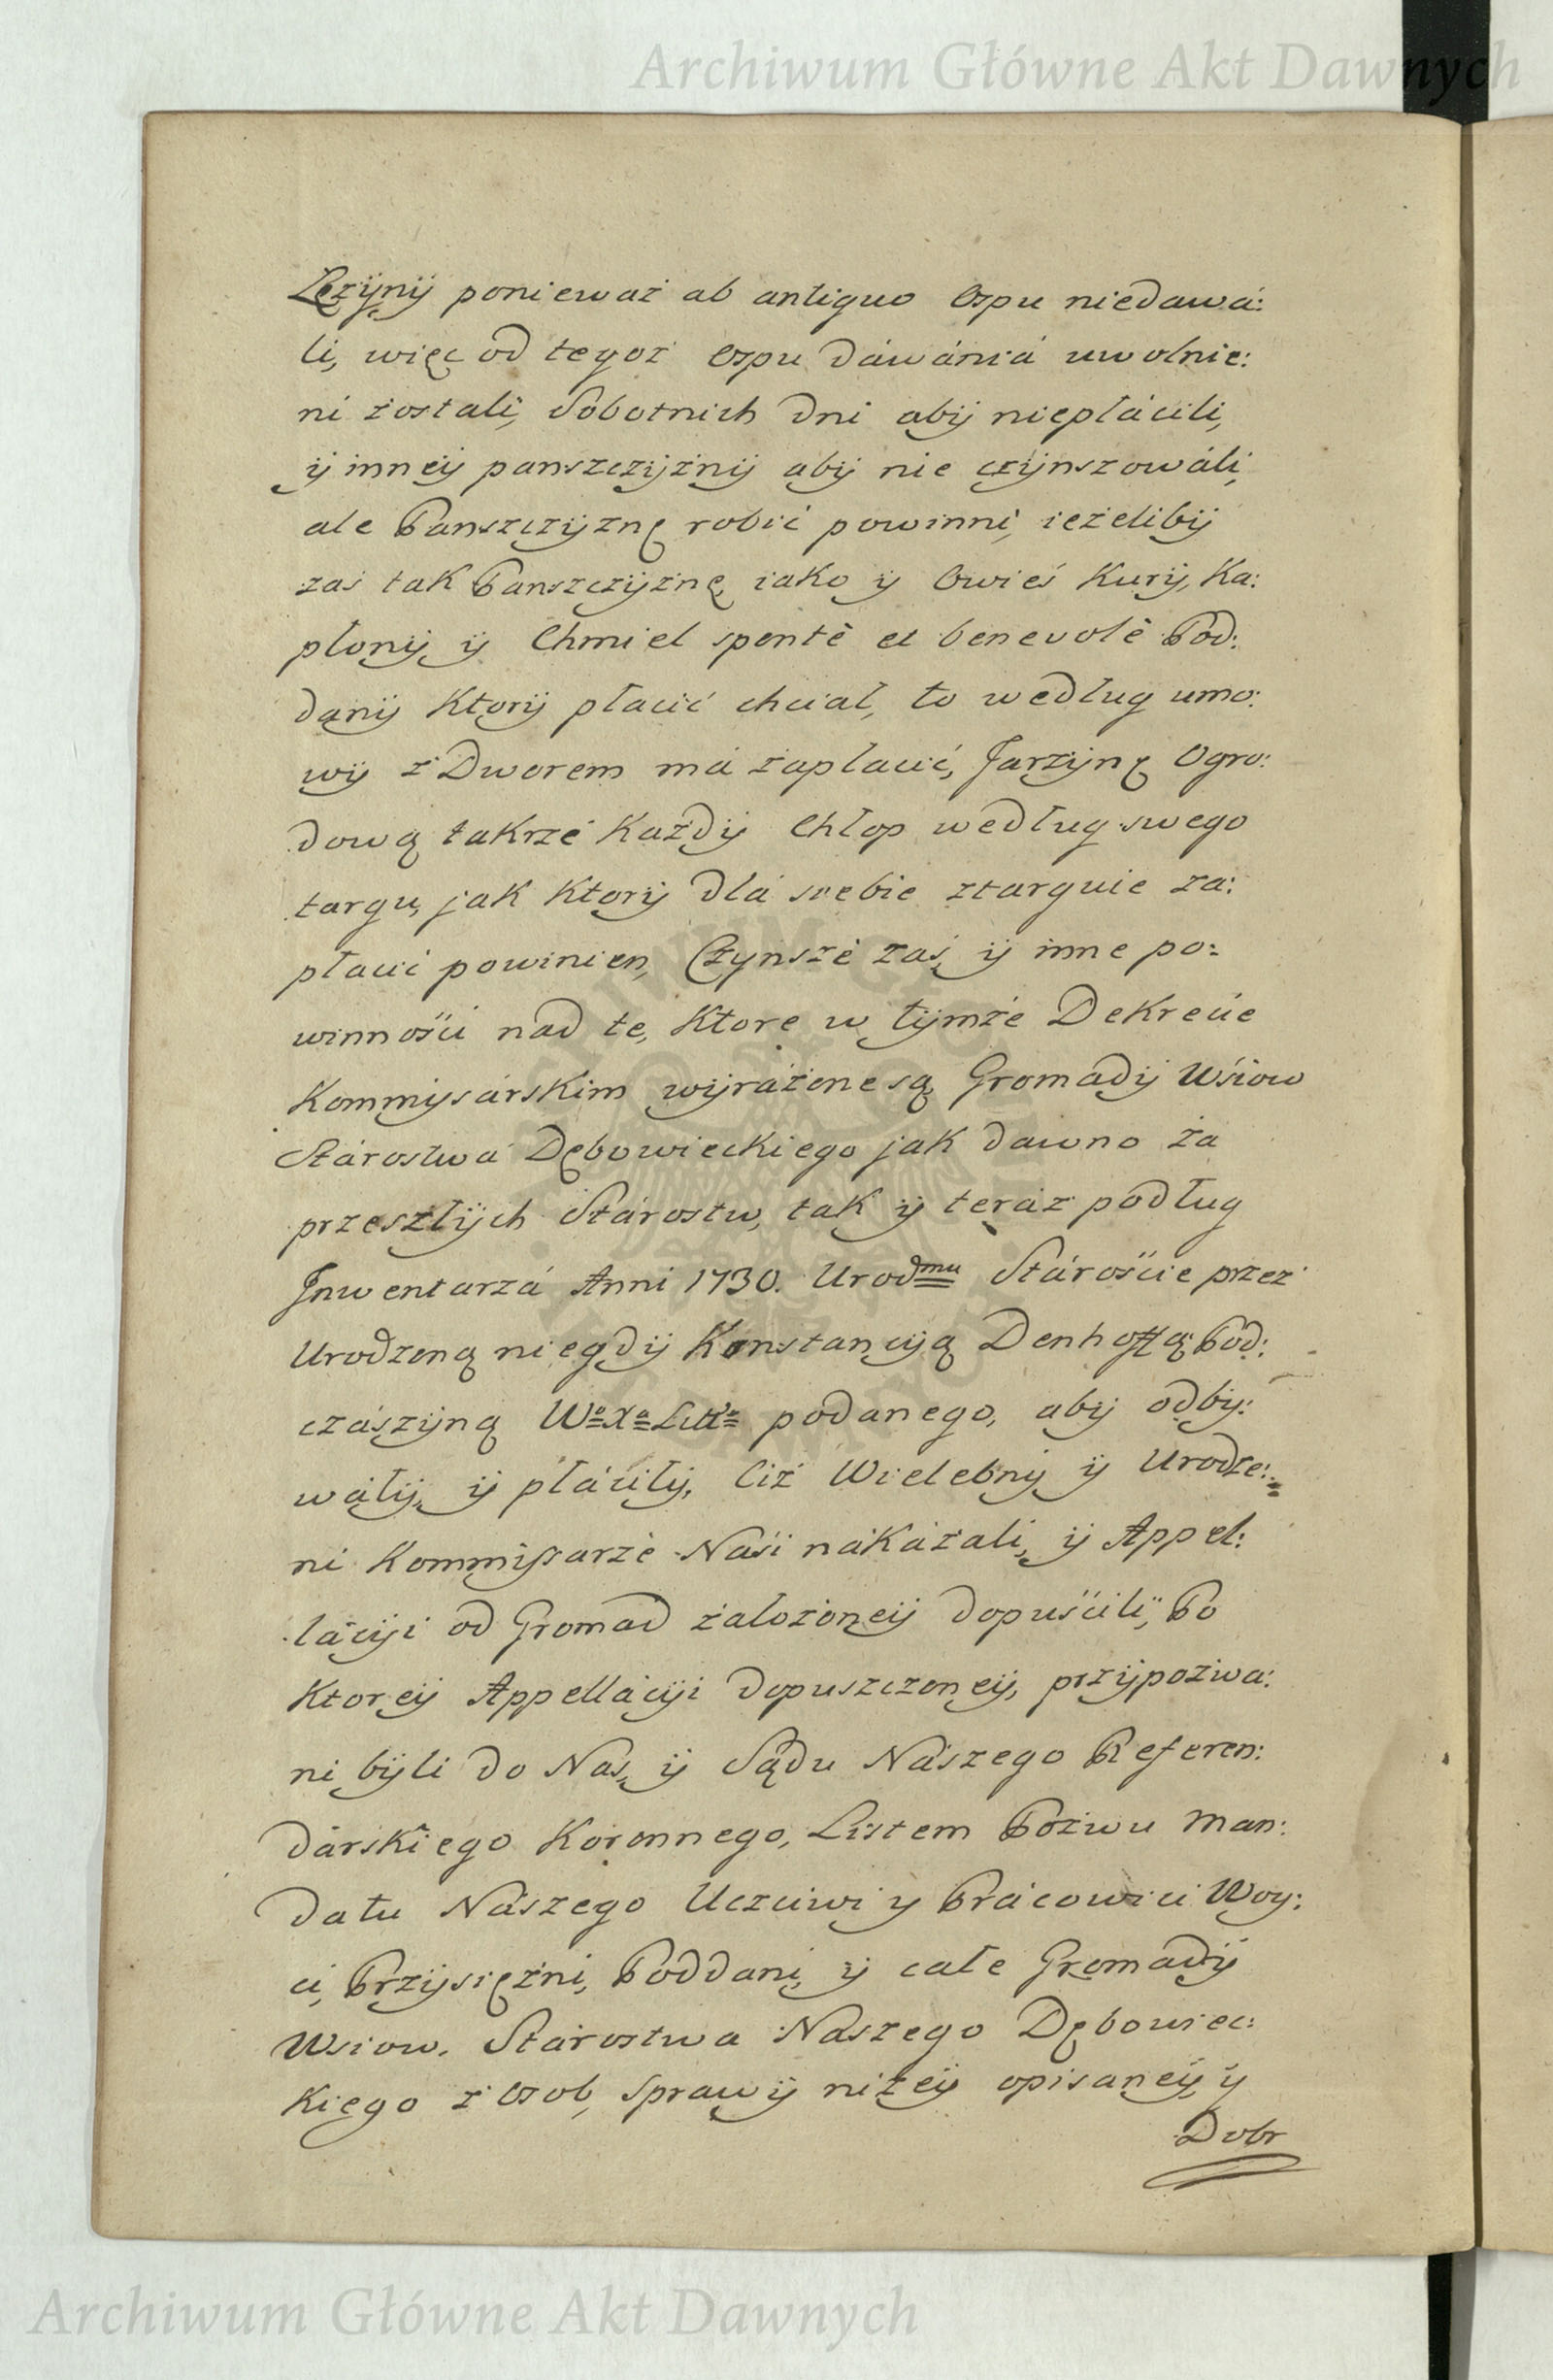 Archiwum Główne Akt Dawnych
Łężyny ponieważ ab antiquo Ospu niedawá:
li, więc od tegoż Ospu dáwániá uwolnie:
ni zostali, Sobotnich dni aby niepłácili,
ÿ inneÿ panszczÿznÿ abÿ nie czÿnszowáli,
ale Panszczÿznę robić powinni, ieżelibÿ
zas tak Panszczÿznę, iako ÿ Owies Kurÿ, Ka:
płonÿ ÿ Chmiel spontè et benevolè Pod:
danÿ Ktorÿ płacić chciał, to według umo:
wÿ z Dworem má zapłacić, Jarzÿnę Ogro:
dową takrze Kazdÿ Chłop według swego
targu, jak Ktorÿ dlá siebie ztarguie za:
płacić powinien, Czynsze zaś, ÿ inne po:
winności nad te, Ktore w tÿmże Dekrecie
Kommÿsárskim wÿrażone są, Gromadÿ Wsiow
Stárostwá Dębowieckiego jak dawno za
przeszłÿch Stárostw, tak ÿ teráz podług
Jnwentarzá Anni 1730. Urodmu Stároście przez
Urodzoną niegdÿ Konstancÿą Denhoffą Pod:
czászÿną Wo Xa Litto podanego, abÿ odbÿ:
wáłÿ, ÿ płáciłÿ, Ciż Wielebnÿ ÿ Urodze:
ni Kommissarze Nasi nákázali, ÿ Appel:
lácÿi od Gromad założoneÿ dopuścilÿ, Po
Ktoreÿ Appellácÿi dopuszczoneÿ, przÿpozwa:
ni bÿli do Nas, ÿ Sądu Nászego Referen:
dárskiego Koronnego, Listem Pozwu Man:
datu Nászego Uczciwi y Prácowici Woy:
ci, Przÿsiężni, Poddani, ÿ całe Gromadÿ
Wsiow. Stárostwa Nászego Dębowiec:
Kiego z Osob, Sprawÿ niżeÿ opisaneÿ, ÿ
Dobr
Archiwum Główne Akt Dawnych